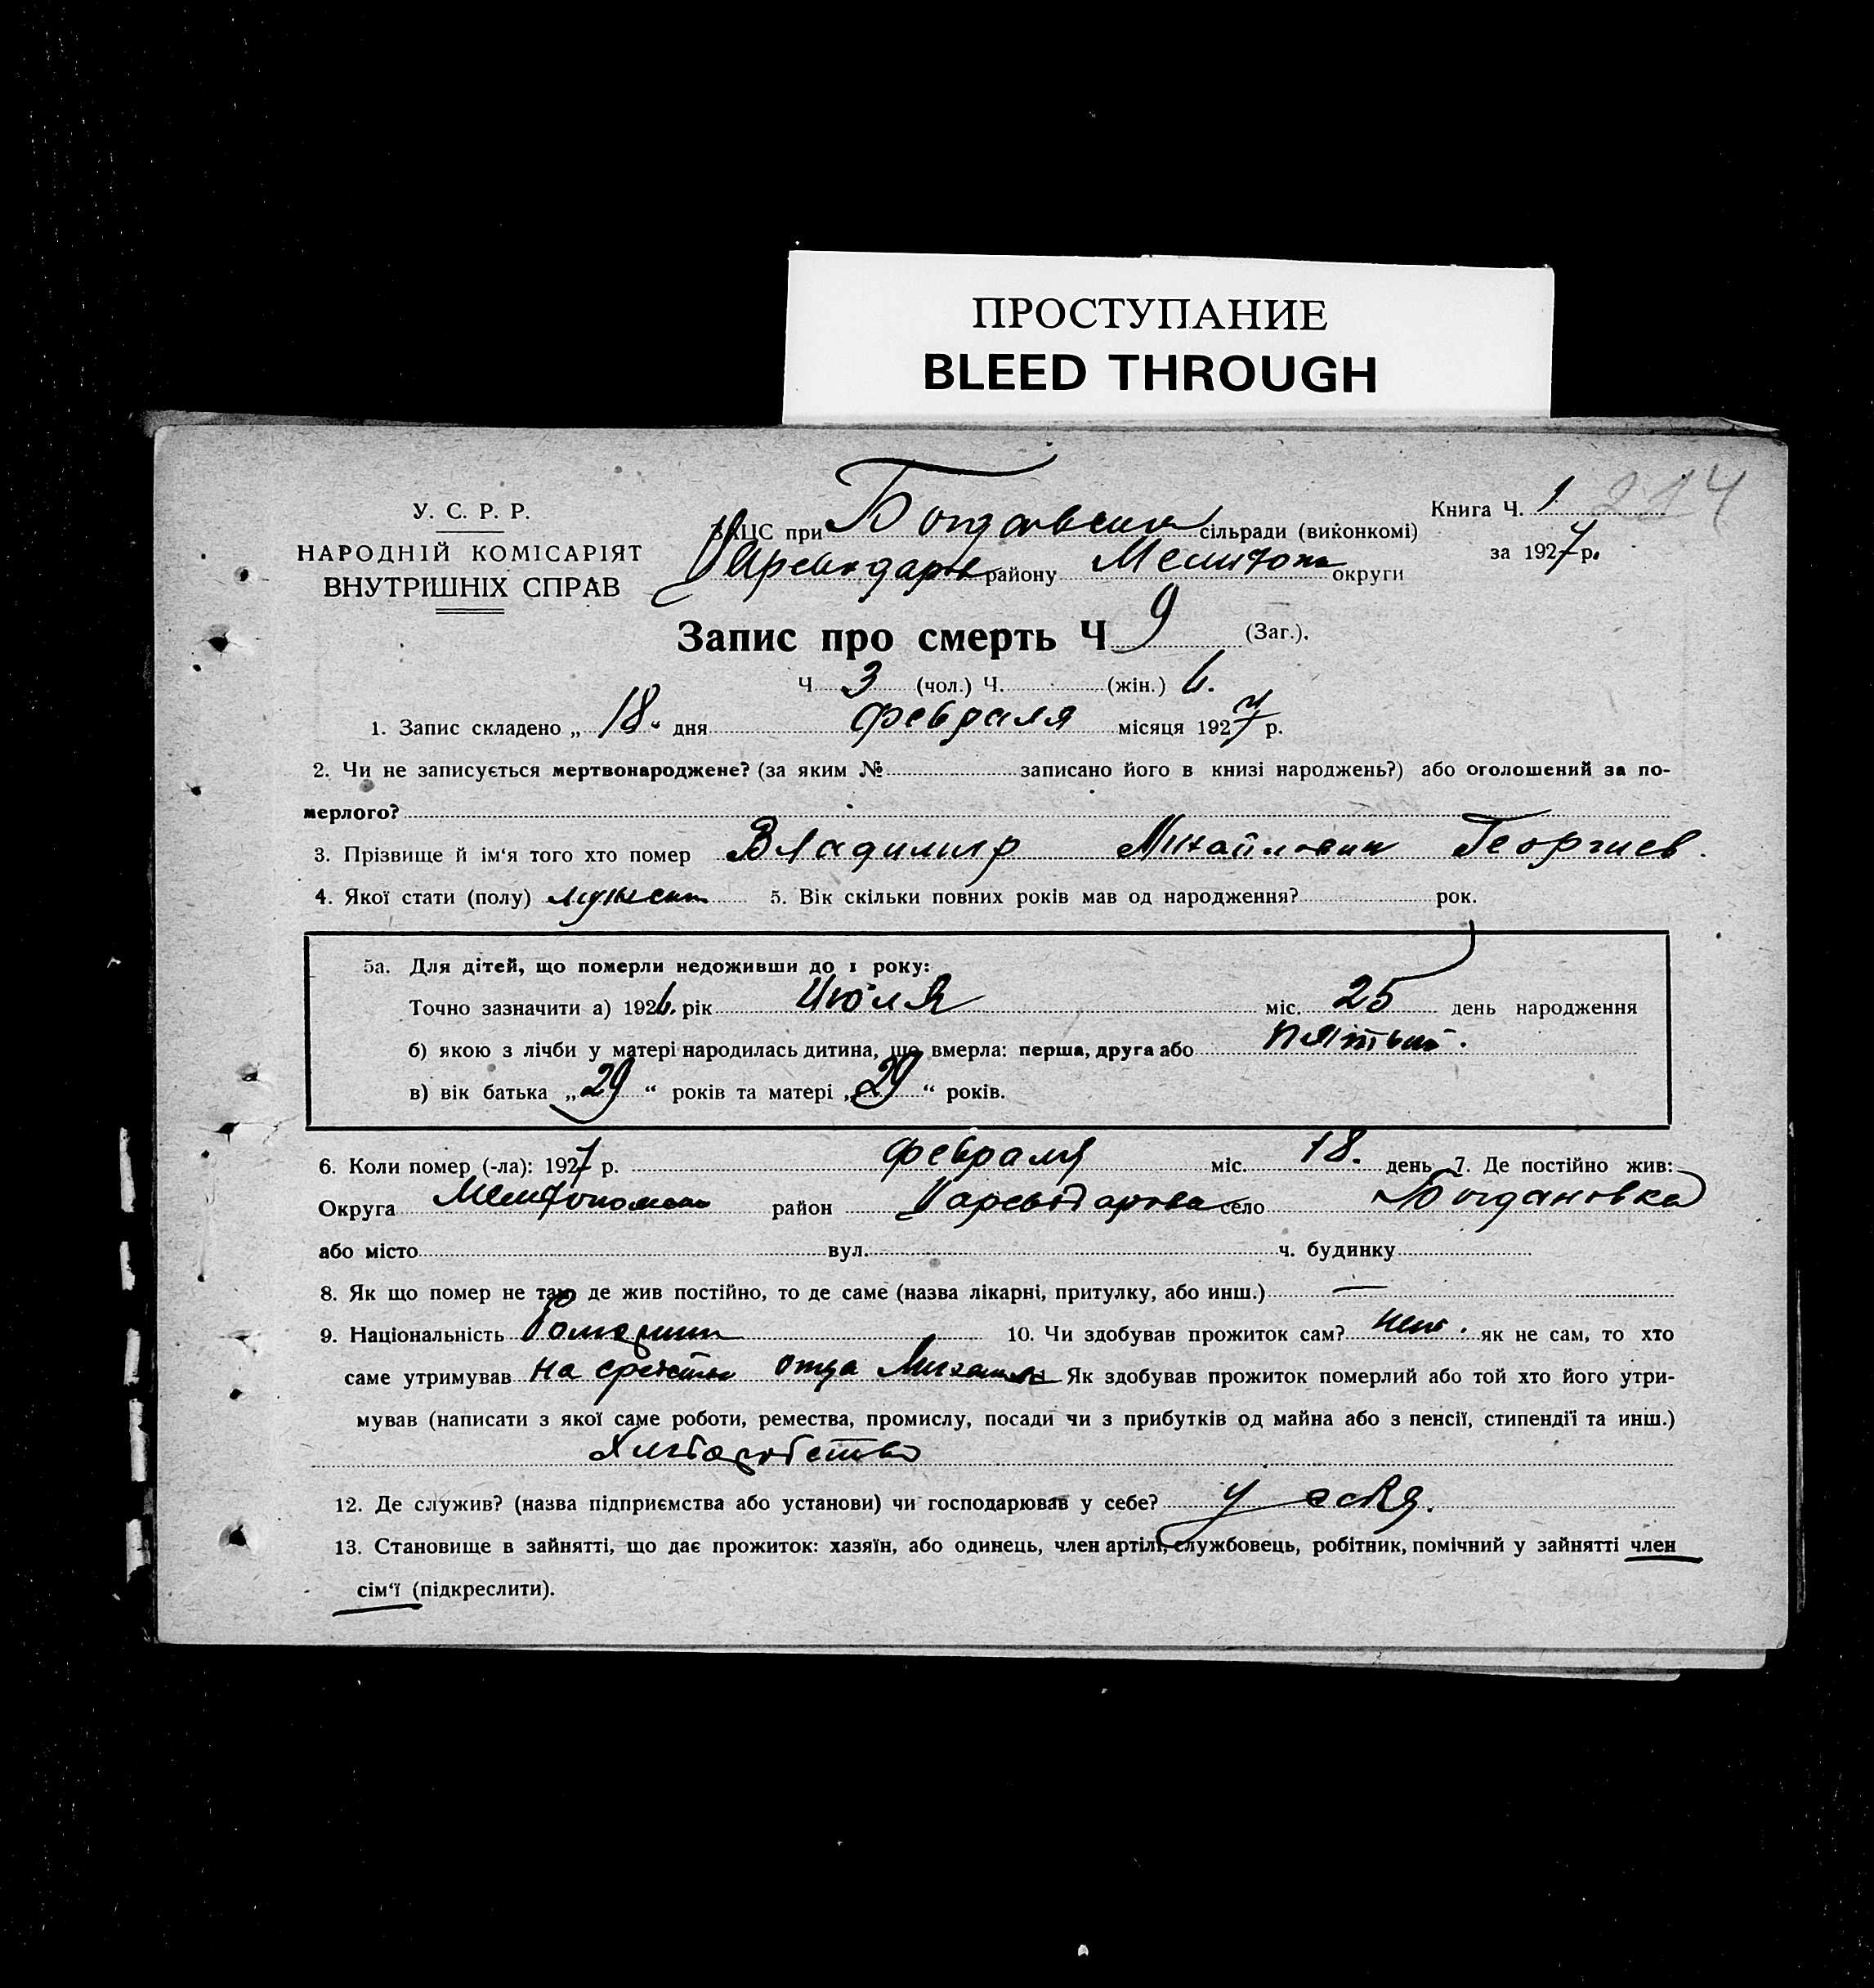 ПРОСТУПАНИЕ
BLEED THROUGH
У. С. Р. Р.
НАРОДНІЙ КОМІСАРІЯТ
ВНУТРІШНІХ СПРАВ
ЗАЦС при сільради (виконкомі)
району округи
Книга Ч. 1 214
за 1927 р.
Запис про смерть Ч 9 (Заг.).
Ч. 3 (чол.) Ч. (жін.) 6.
1. Запис складено „ 18 “ дня февраля місяця 1927 р.
2. Чи не записується мертвонароджене? (за яким № записано його в книзі народжень?) або оголошений за по-
мерлого?
3. Прізвище й ім'я того хто помер Владимир Михайлович Георгиев.
4. Якої стати (полу) 5. Вік скільки повних років мав од народження? рок.
5а. Для дітей, що померли недоживши до 1 року:
Точно зазначити а) 1926. рік Июля міс. 25 день народження
б) якою з лічби у матері народилась дитина, що вмерла: перша, друга або пятый.
в) вік батька „ 29 “ років та матері „ 29 “ років.
6. Коли помер (-ла): 1927 р. февраля міс. 18. день 7. Де постійно жив:
Округа район село Богдановка
або місто вул. ч. будинку
8. Як що помер не там, де жив постійно, то де саме (назва лікарні, притулку, або инш.) —
9. Національність 10. Чи здобував прожиток сам? нет. як не сам, то хто
саме утримував на отца Як здобував прожиток померлий або той хто його утри-
мував (написати з якої саме роботи, ремества, промислу, посади чи з прибутків од майна або з пенсії, стипендії та инш.)
12. Де служив? (назва підприємства або установи) чи господарював у себе? у себя.
13. Становище в зайнятті, що дає прожиток: хазяїн, або одинець, член артілі, службовець, робітник, помічний у зайнятті член
сім'ї (підкреслити).